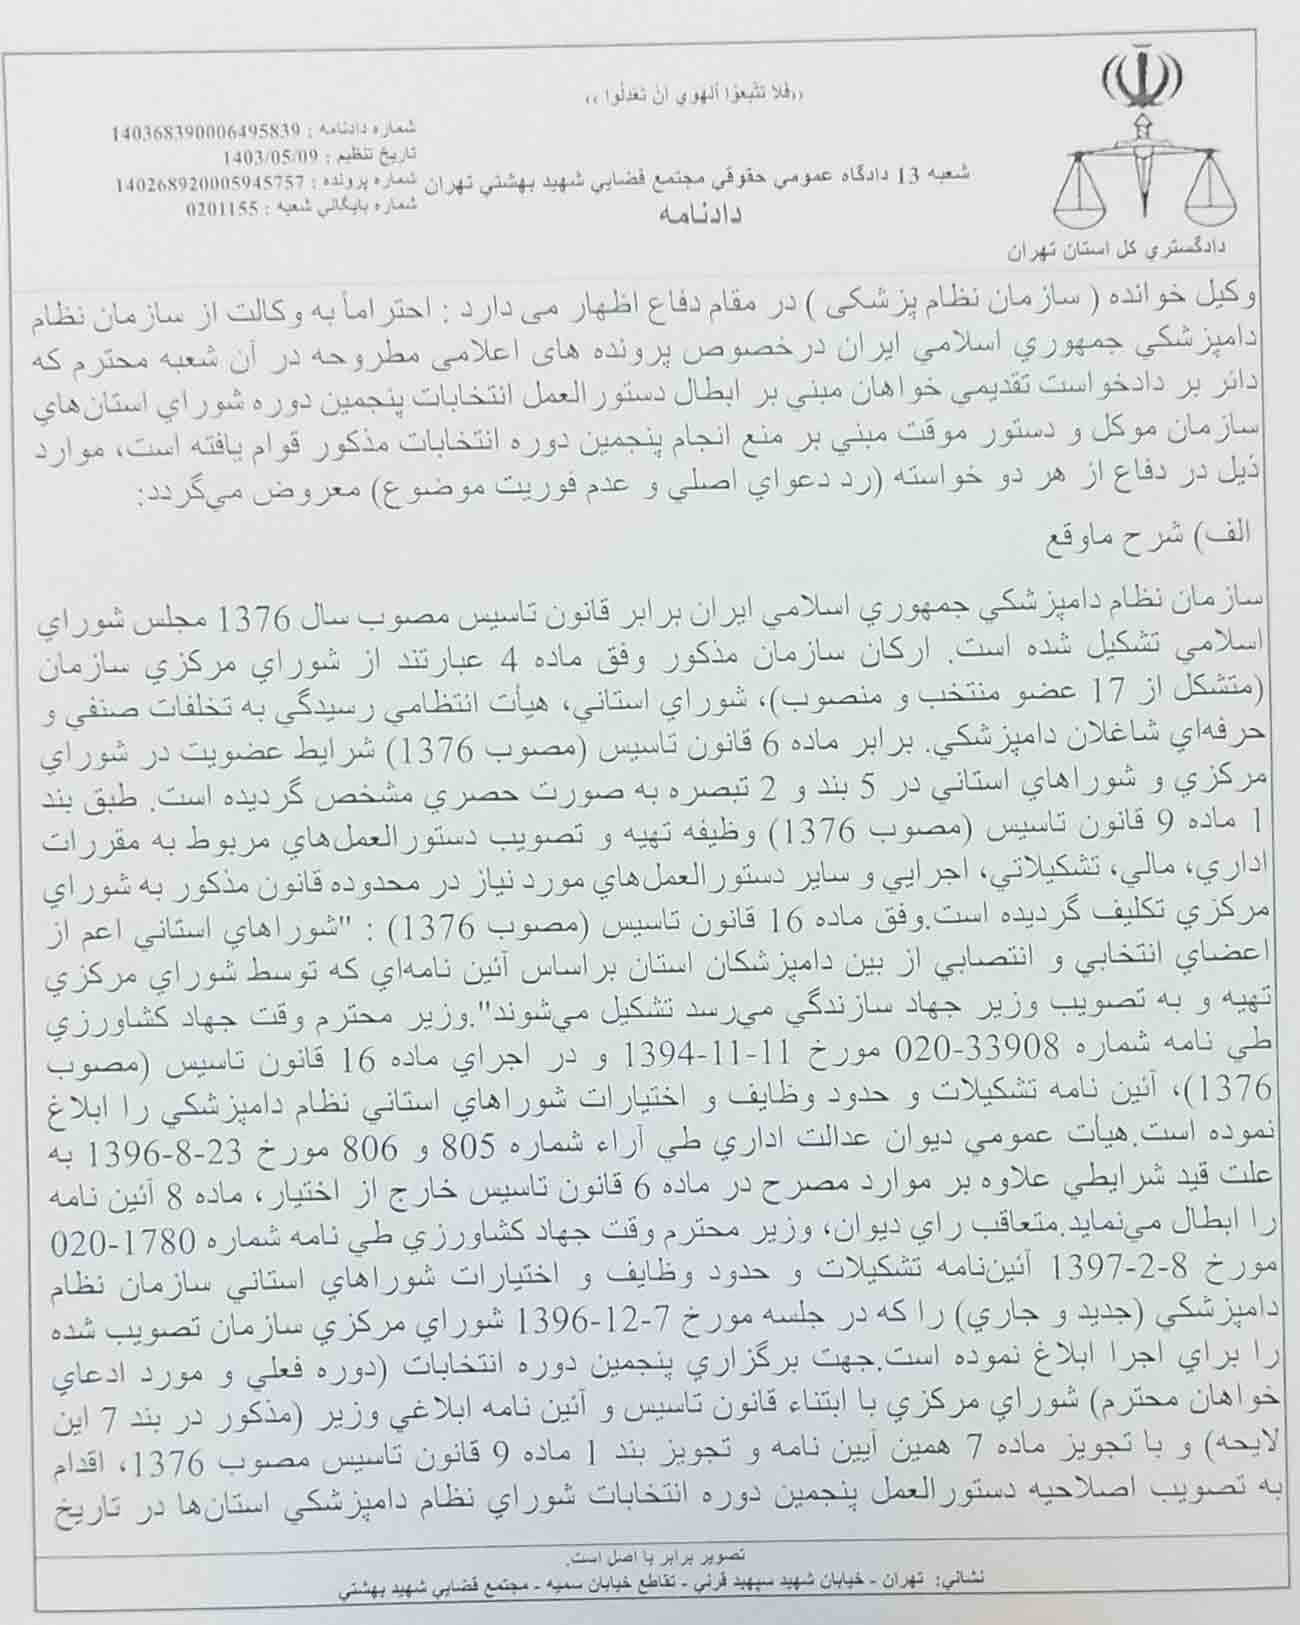 «فَلا تَتَّبِعوُا اَلهوي اَنْ تَعْدِلُوا»
شماره دادنامه : 140368390006495839
تاریخ تنظیم : 1403/05/09
شماره پرونده : 140268920005945757
شماره بایگاني شعبه : 0201155
شعبه 13 دادگاه عمومي حقوقي مجتمع قضايي شهید بهشتي تهران
دادنامه
دادگستري کل استان تهران
وکیل خوانده ( سازمان نظام پزشکی ) در مقام دفاع اظهار می دارد : احتراماً به وکالت از سازمان نظام
دامپزشکي جمهوري اسلامي ایران درخصوص پرونده هاي اعلامی مطروحه در آن شعبه محترم که
دائر بر دادخواست تقدیمي خواهان مبني بر ابطال دستورالعمل انتخابات پنجمین دوره شوراي استان‌هاي
سازمان موکل و دستور موقت مبني بر منع انجام پنجمین دوره انتخابات مذکور قوام یافته است، موارد
ذیل در دفاع از هر دو خواسته (رد دعواي اصلي و عدم فوریت موضوع) معروض مي‌گردد:
الف) شرح ماوقع
سازمان نظام دامپزشکي جمهوري اسلامي ایران برابر قانون تاسیس مصوب سال 1376 مجلس شوراي
اسلامي تشکیل شده است. ارکان سازمان مذکور وفق ماده 4 عبارتند از شوراي مرکزي سازمان
(متشکل از 17 عضو منتخب و منصوب)، شوراي استاني، هیأت انتظامي رسیدگي به تخلفات صنفي و
حرفه‌اي شاغلان دامپزشکي. برابر ماده 6 قانون تاسیس (مصوب 1376) شرایط عضویت در شوراي
مرکزي و شوراهاي استاني در 5 بند و 2 تبصره به صورت حصري مشخص گردیده است. طبق بند
1 ماده 9 قانون تاسیس (مصوب 1376) وظیفه تهیه و تصویب دستورالعمل‌هاي مربوط به مقررات
اداري، مالي، تشکیلاتي، اجرایي و سایر دستورالعمل‌هاي مورد نیاز در محدوده قانون مذکور به شوراي
مرکزي تکلیف گردیده است.وفق ماده 16 قانون تاسیس (مصوب 1376) : "شوراهاي استاني اعم از
اعضاي انتخابي و انتصابي از بین دامپزشکان استان براساس آئین نامه‌اي که توسط شوراي مرکزي
تهیه و به تصویب وزیر جهاد سازندگي مي‌رسد تشکیل مي‌شوند".وزیر محترم وقت جهاد کشاورزي
طي نامه شماره 33908-020 مورخ 11-11-1394 و در اجراي ماده 16 قانون تاسیس (مصوب
1376)، آئین نامه تشکیلات و حدود وظایف و اختیارات شوراهاي استاني نظام دامپزشکي را ابلاغ
نموده است.هیأت عمومي دیوان عدالت اداري طي آراء شماره 805 و 806 مورخ 23-8-1396 به
علت قید شرایطي علاوه بر موارد مصرح در ماده 6 قانون تاسیس خارج از اختیار، ماده 8 آئین نامه
را ابطال مي‌نماید.متعاقب راي دیوان، وزیر محترم وقت جهاد کشاورزي طي نامه شماره 1780-020
مورخ 8-2-1397 آئین‌نامه تشکیلات و حدود وظایف و اختیارات شوراهاي استاني سازمان نظام
دامپزشکي (جدید و جاري) را که در جلسه مورخ 7-12-1396 شوراي مرکزي سازمان تصویب شده
را براي اجرا ابلاغ نموده است.جهت برگزاري پنجمین دوره انتخابات (دوره فعلي و مورد ادعاي
خواهان محترم) شوراي مرکزي با ابتناء قانون تاسیس و آئین نامه ابلاغي وزیر (مذکور در بند 7 این
لایحه) و با تجویز ماده 7 همین آیین نامه و تجویز بند 1 ماده 9 قانون تاسیس مصوب 1376، اقدام
به تصویب اصلاحیه دستورالعمل پنجمین دوره انتخابات شوراي نظام دامپزشکي استان‌ها در تاریخ
تصویر برابر با اصل است.
نشاني: تهران - خیابان شهید سپهبد قرني - تقاطع خیابان سمیه - مجتمع قضایي شهید بهشتي